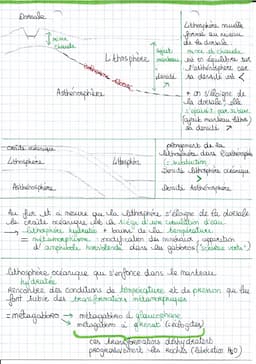 Dorsale
mince
chaude
Lithosphère
ajout
manteau
densité ↗
Asthénosphère
Lithosphère nouvelle
formée au niveau
de la dorsale
mince et chaude
est en équilibre sur
l'asthénosphère car
sa densité est <
+ on s'éloigne de
la dorsale, elle
s'épaissit par sa base
(ajout manteau lithos)
sa densité ↗
croûte océanique
Lithosphère
Lithosphère
Asthénosphère
plongement de la
lithosphère dans l'asthénosphère
: subduction
Densité lithosphère océanique
>
Densité Asthénosphère
Au fur et à mesure que la lithosphère s'éloigne de la dorsale
la croûte océanique est le siège d'une circulation d'eau
→ lithosphère hydratée + baisse de la température
= métamorphisme : modification des minéraux, apparition
d'amphibole hornblende dans les gabbros (schistes verts)
Lithosphère océanique qui s'enfonce dans le manteau
hydratée
Rencontre des conditions de température et de pression qui lui
font subir des transformations métamorphiques
= métagabbros → métagabbro à glaucophane
métagabbro à grenat (éclogites)
ces transformations déshydratent
progressivement les roches (libération H₂O)